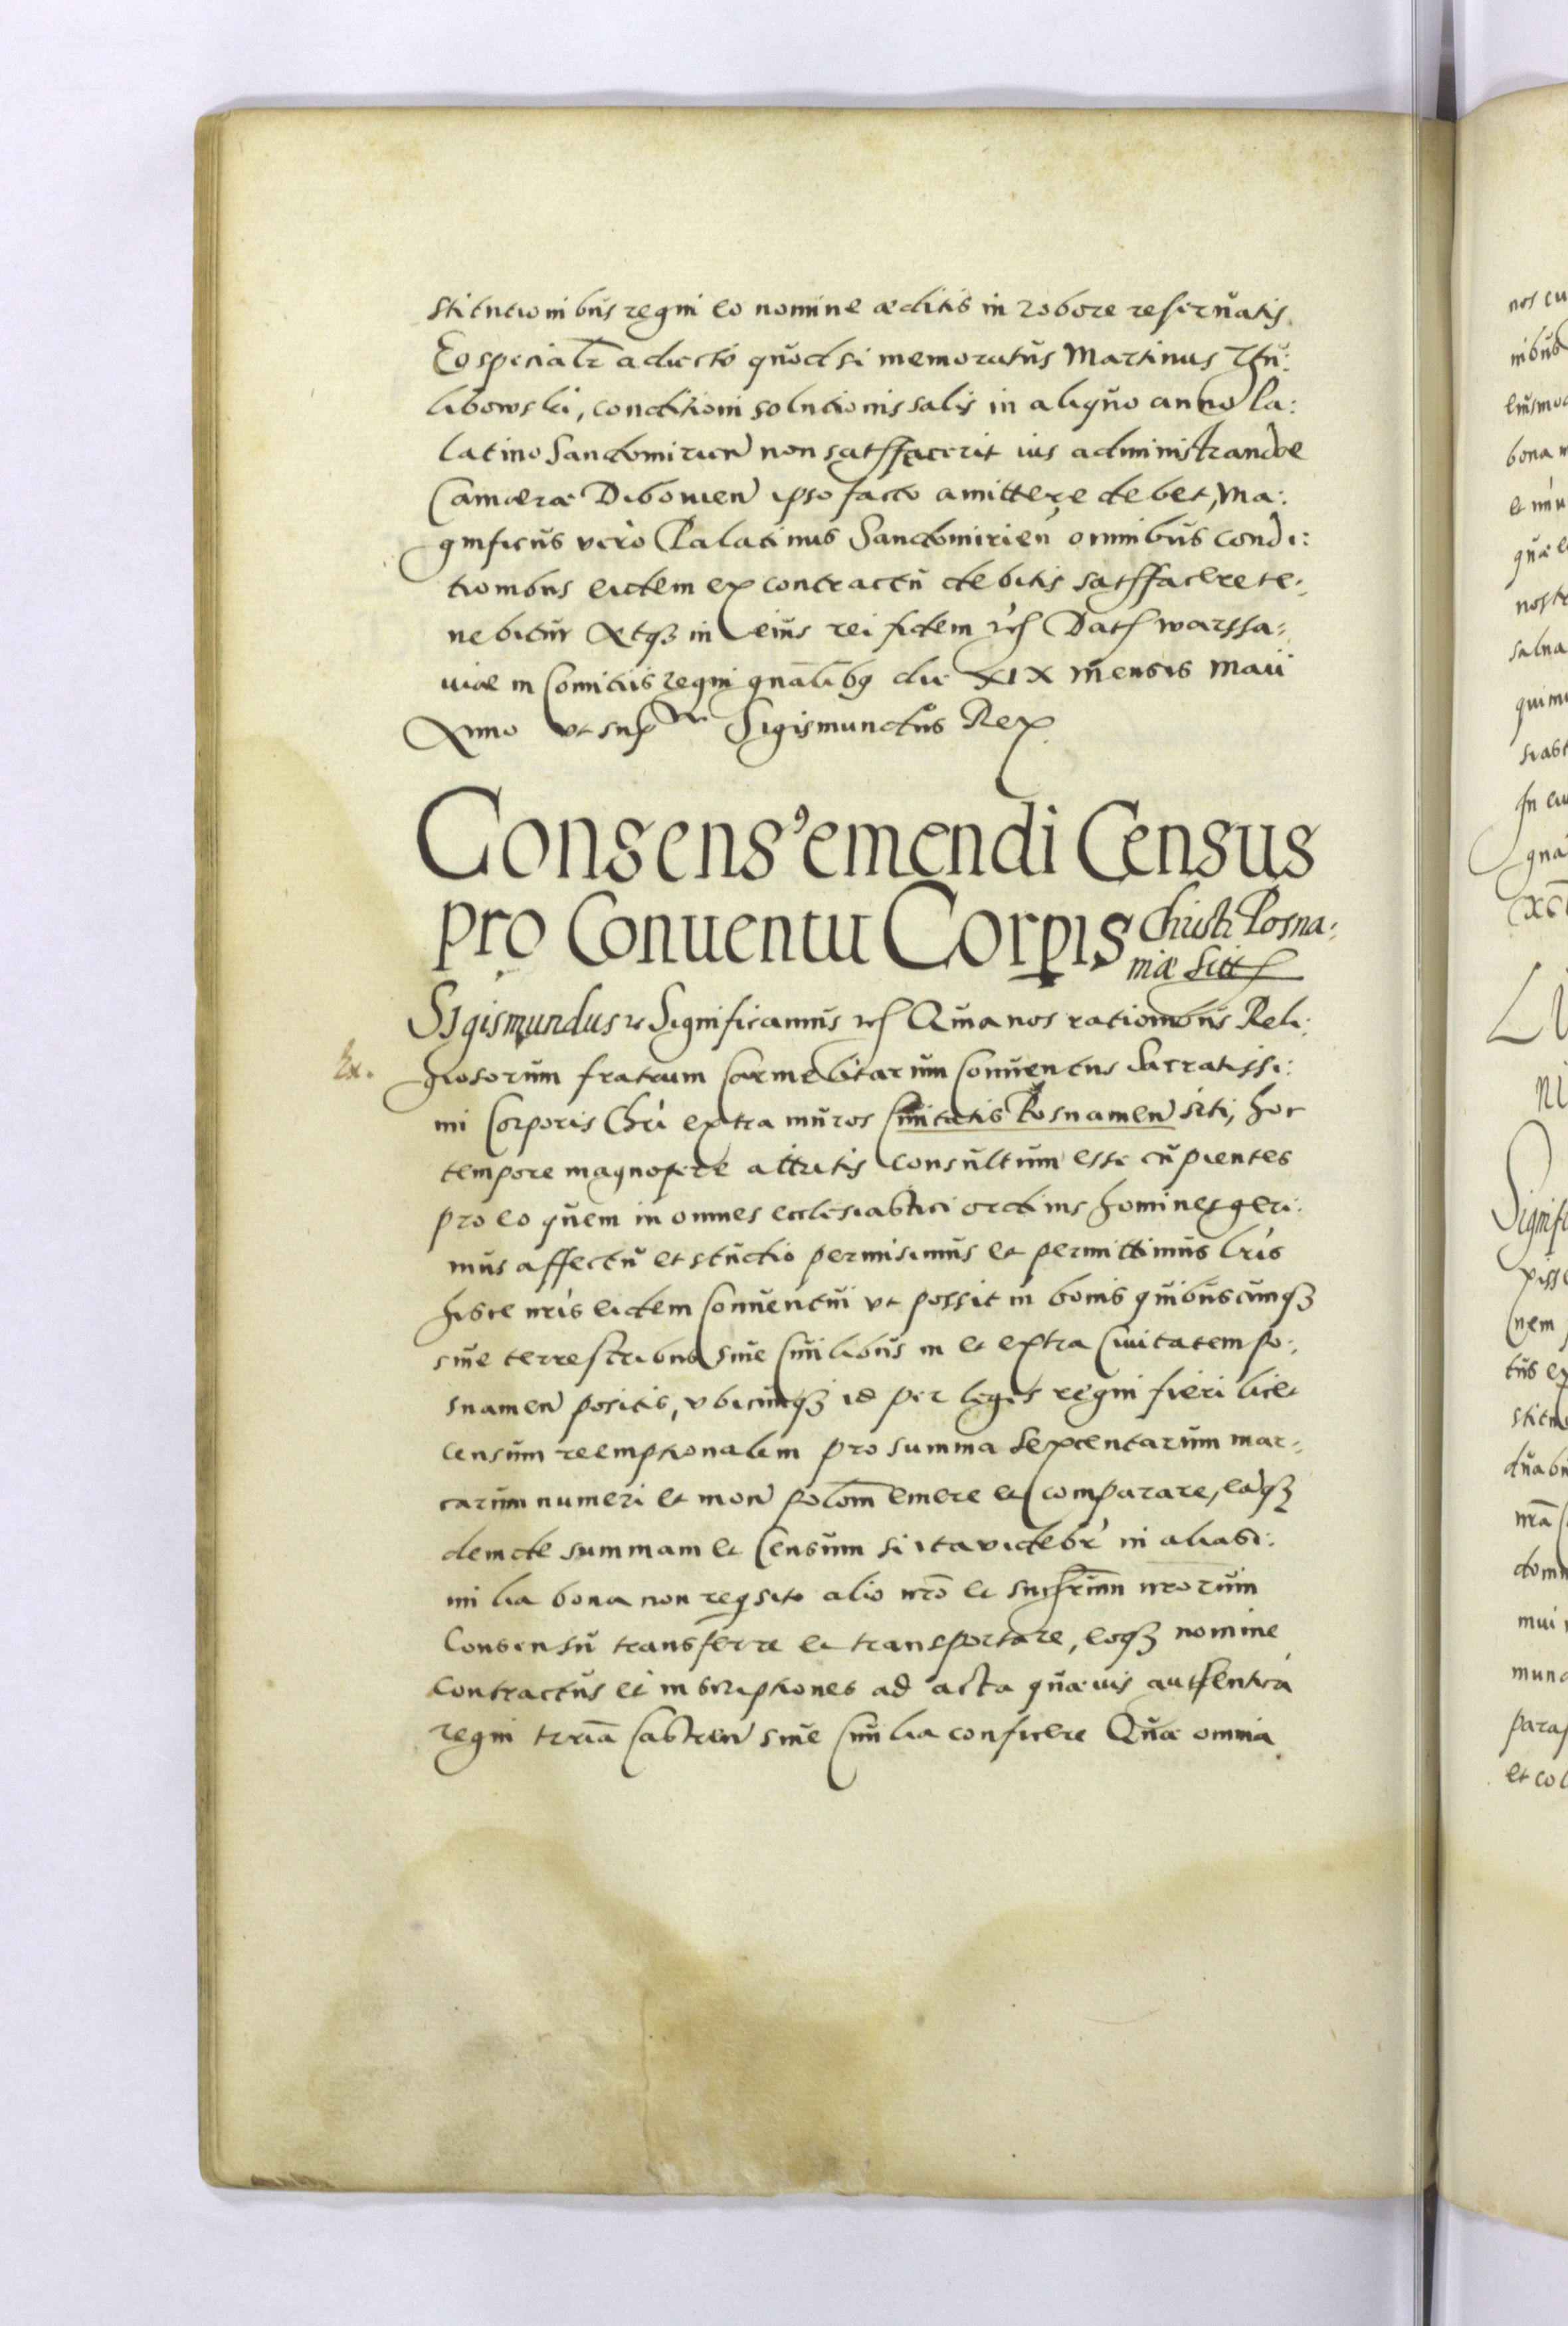 stitutionibus regni eo nomine æditis in robore reseruatis.
Eo specialr̃ adiecto quod si memoratus Martinus Chu:
libowski, conditioni solutionis salis in aliquo anno Pa:
latino Sandomirien̄ non satisfacerit ius administrandæ
Cameræ Dibouien̄ ipso facto amittere debet, Ma:
gnificus vero Palatinus Sandomirien̄ omnibus condi:
tionibus eidem ex contractu debitis satisfacere te:
nebitur Atq3 in eius rei fidem rc̄ Dat̄ warssa:
uiæ in Comitiis regni gnãlib9 die XIX mensis Maii
Anno vt sup̃ Sigismundus Rex
Consens9 emendi Census
pro Conuentu Corpis Christi Posna:
niæ Siti
Sigismundus rc̄ Significamus rc̄ Quia nos rationibus Reli:
Ex.
giosorum fratrum Carmelitarum Conuentus Sacratissi:
mi Corporis Chri extra muros Ciuitatis Posnanien̄ siti, hoc
tempore magnopere attritis consultum esse cupientes
pro eo quem in omnes ecclesiastici ordinis homines geri:
mus affectu et studio permisimus et permittimus lr̃is
hisce nr̃is eidem Conuentui vt possit in bonis quibuscumq3
siue terrestribus siue Ciuilibus in et extra Ciuitatem Po:
snanien̄ positis, vbicumq3 id per leges regni fieri licet
censum reemptionalem pro summa sexcentarum mar:
carum numeri et mon̄ polon̄ emere et comparare, eaq3
demde summam et Censum si ita videbr̃ in alia si:
milia bona non reqsito alio nr̃o et succr̃um nr̃orum
Consensu transferre et transportare, eoq3 nomine
contractus et inscriptiones ad acta quæuis authentica
regni trr̃ia Castren̄ siue Ciuilia conficere Quæ omnia